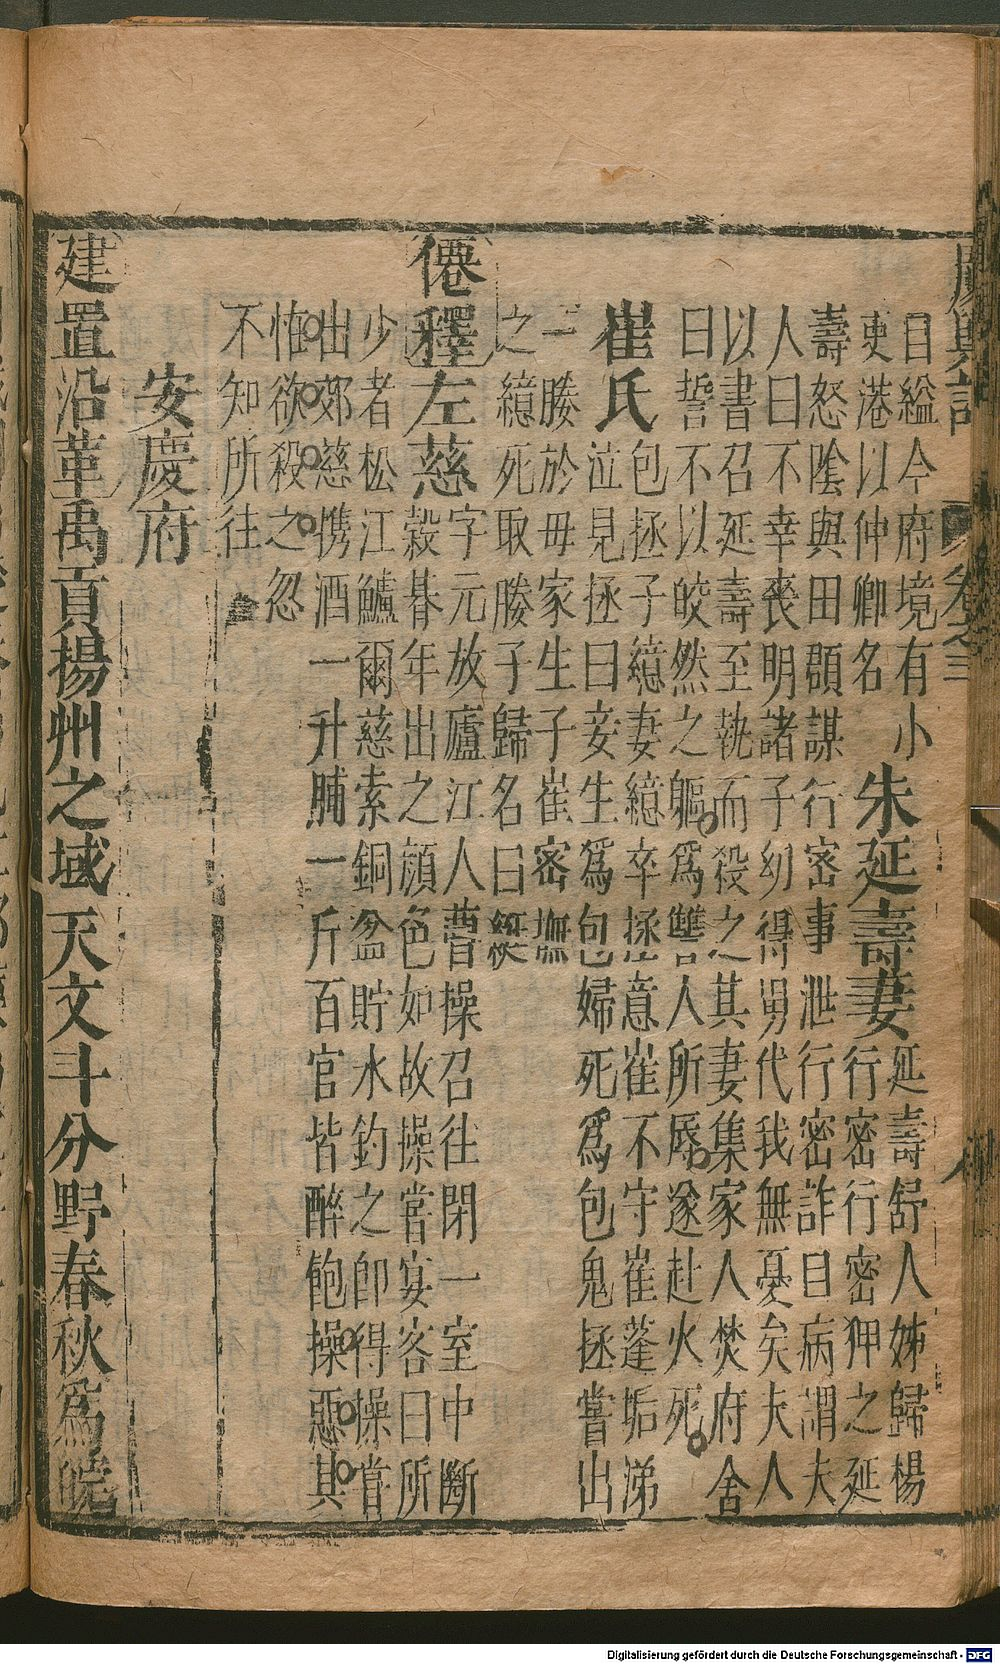 廣輿記 卷之三 八
目縊今府境有小
吏港以仲卿名
朱延壽妻
延壽舒人姊歸楊
行密行密狎之延
壽怒陰與田頵謀行密事泄行密詐目病謂夫
人曰不幸喪明諸子幼得舅代我無憂矣夫人
以書召延壽至執而殺之其妻集家人焚府舍
曰誓不以皎然之軀為讐人所辱遂赴火死
崔氏
包拯子繶妻繶卒拯意崔不守崔蓬垢涕
泣見拯曰妾生為包婦死為包鬼拯嘗出
一媵於母家生子崔密撫
之繶死取媵子歸名曰綖
僊釋左慈
字元放廬江人曹操召往閉一室中斷
穀朞年出之顏色如故操嘗宴客曰所
少者松江鱸爾慈索銅盆貯水釣之即得操嘗
出郊慈携酒一升脯一斤百官皆醉飽操惡其
怪欲殺之忽
不知所往
安慶府
建置沿革禹貢揚州之域天文斗分野春秋為皖
Digitalisierung gefördert durch die Deutsche Forschungsgemeinschaft - DFG